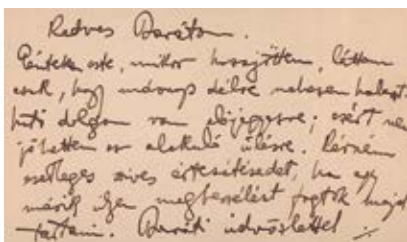 Kedves Barátom.
Péntek este, mikor hazajöttem, láttam
csak, hogy másnap délre nehezen halaszt-
ható dolgom van előjegyezve; ezért nem
jöhettem az alakuló ülésre. Kérném
esetleges szíves értesítésedet, ha egy
másik ilyen megbeszélést fogtok majd
tartani. Baráti üdvözlettel